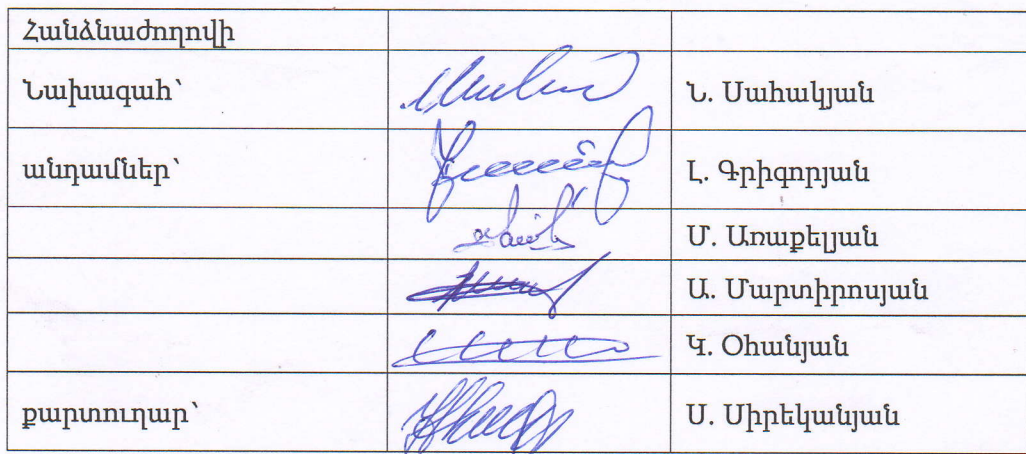 Հանձնաժողովի
Նախագահ՝ Ն. Սահակյան
անդամներ՝ Լ. Գրիգորյան
Մ. Առաքելյան
Ա. Մարտիրոսյան
Կ. Օհանյան
քարտուղար՝ Ս. Սիրեկանյան